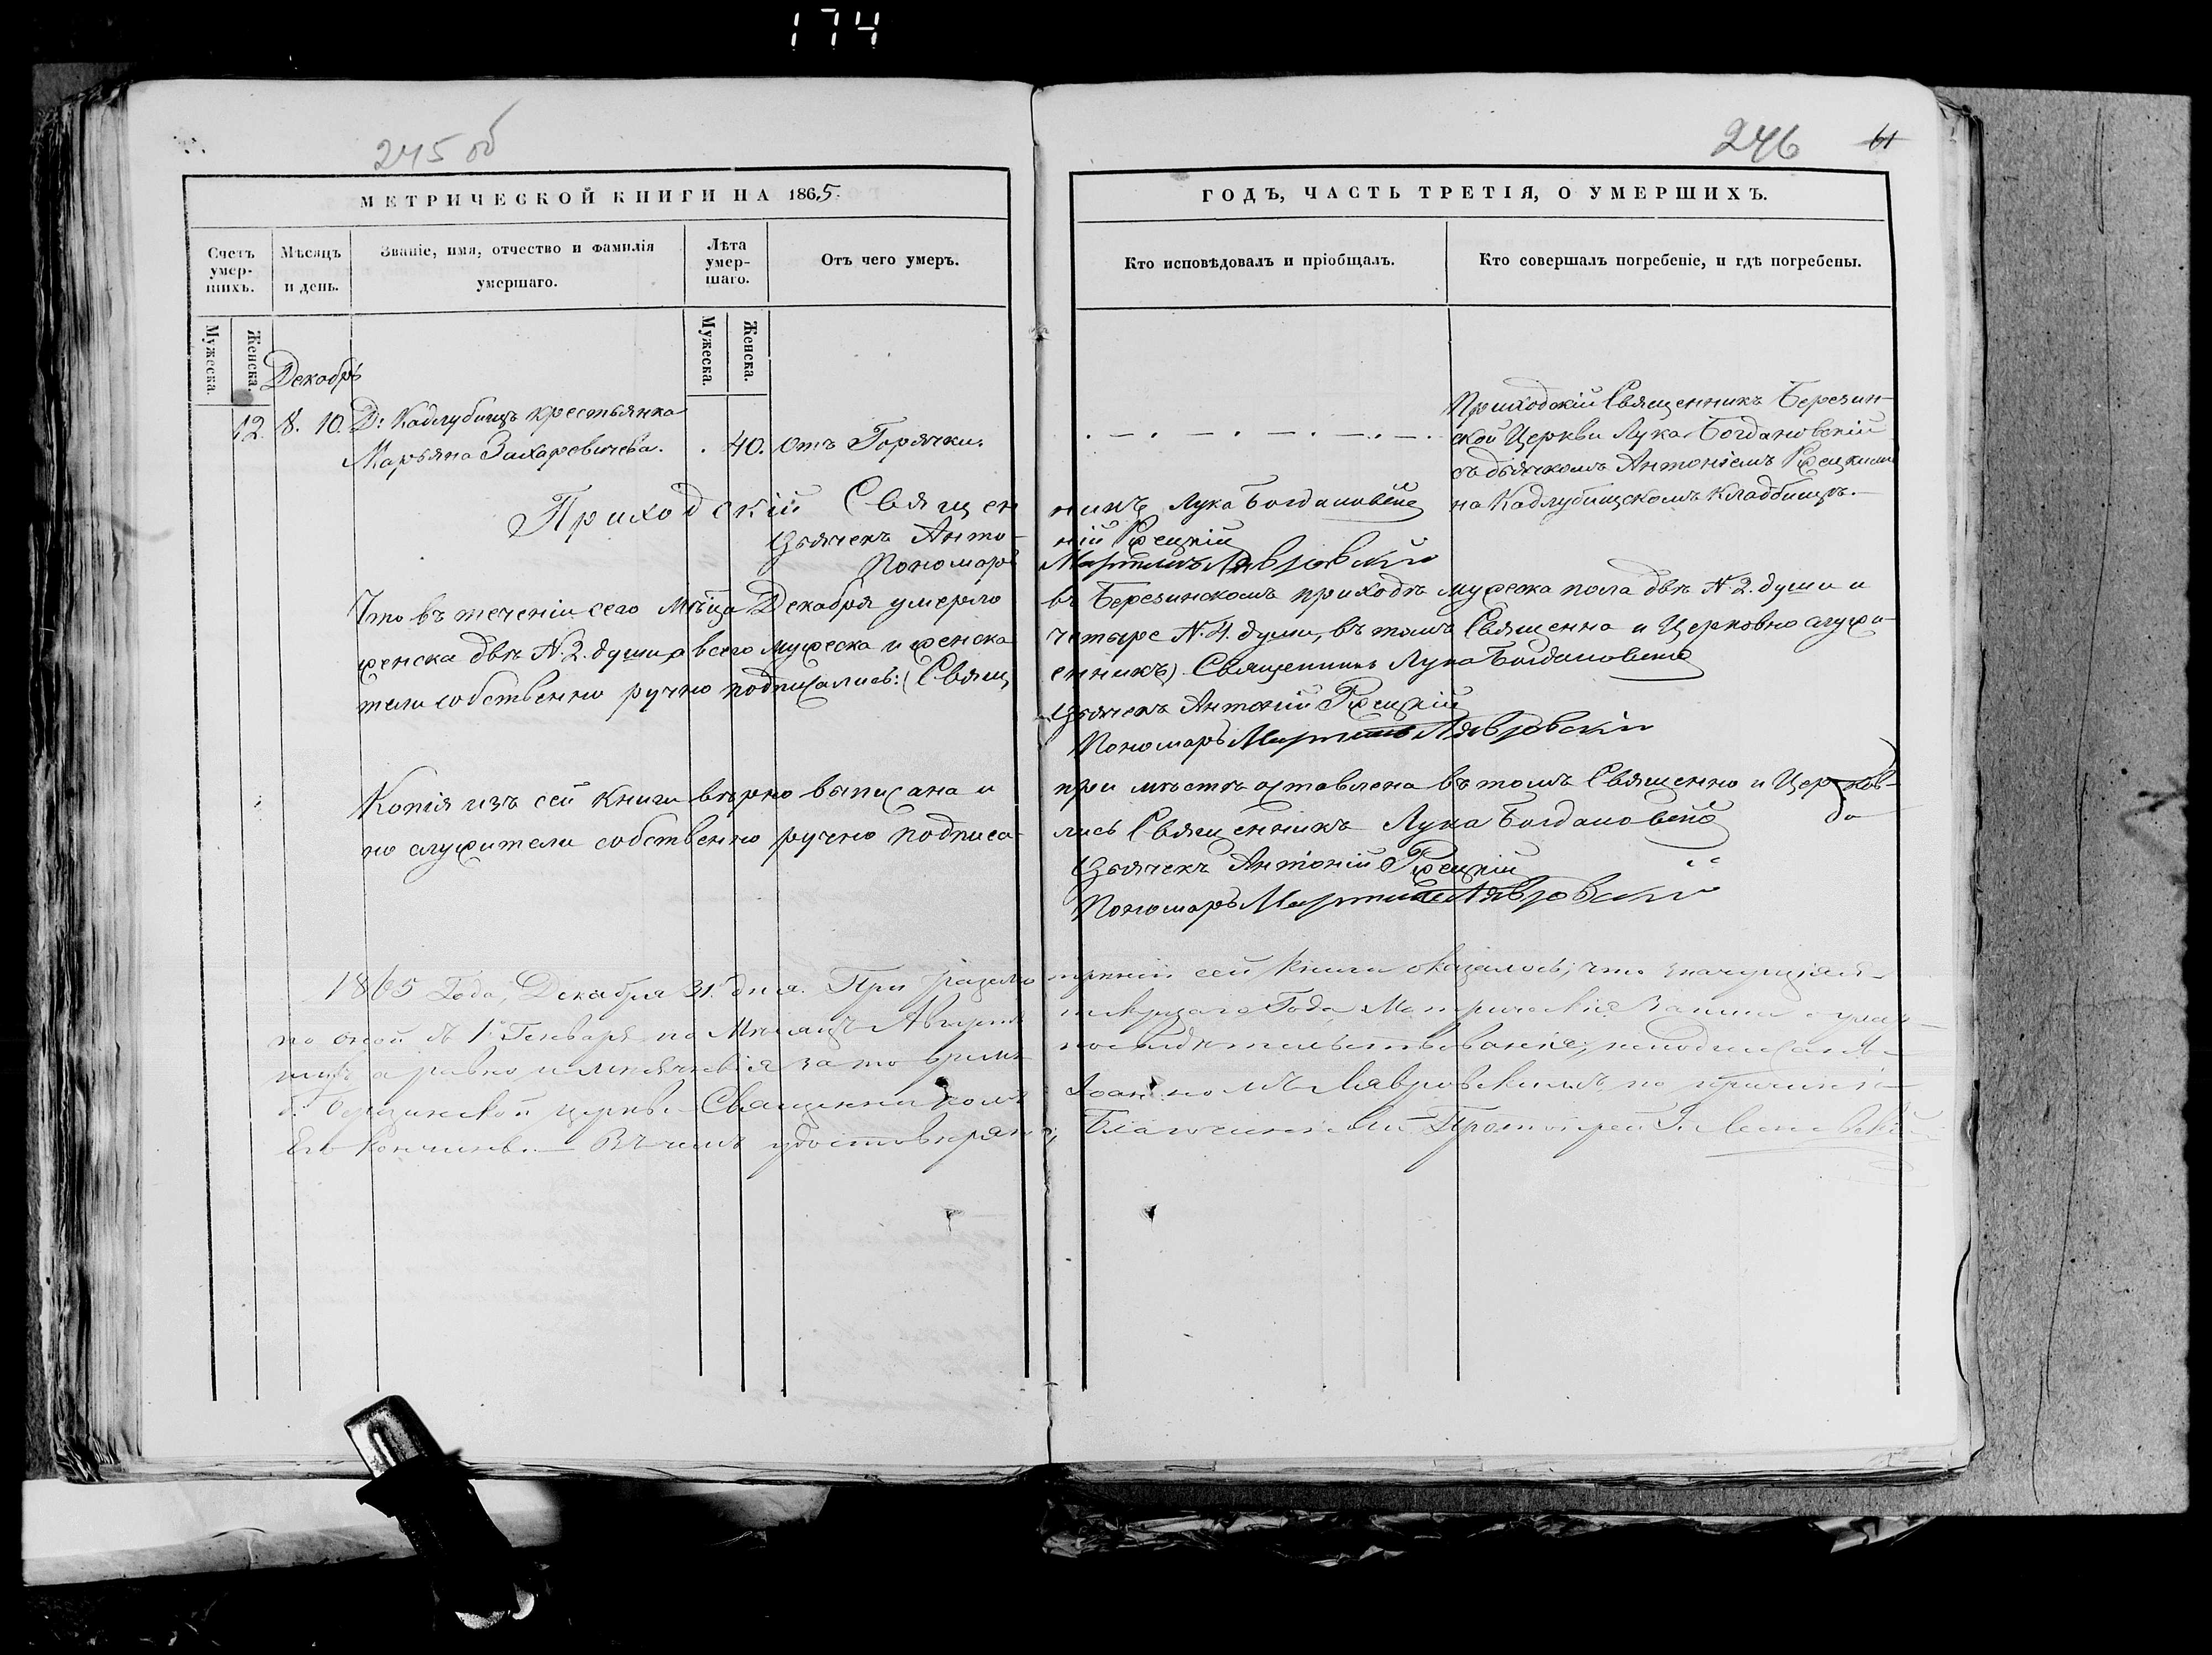 174
245 об
246 61
МЕТРИЧЕСКОЙ КНИГИ НА 1865.
ГОДЪ, ЧАСТЬ ТРЕТІЯ, О УМЕРШИХЪ.
Счетъ умер-шихъ.
Мѣсяцъ и день.
Званіе, имя, отчество и фамилія умершаго.
Лѣта умер-шаго.
Отъ чего умеръ.
Кто исповѣдовалъ и пріобщалъ.
Кто совершалъ погребеніе, и гдѣ погребены.
Мужеска. Женска.
Мужеска. Женска.
Декабрь
12. 8. 10. Д: Кадлубищъ крестьянка
Марьяна Захаревичева. . 40. Отъ Горячки.
Приходскій Священникъ Березин-
ской Церкви Лука Богдановскій
съ дьячкомъ Антоніемъ
на Кадлубищскомъ Кладбищѣ.
Приходскій Священ никъ Лука Богдановскій
Дьячекъ Анто- ній
Пономарь Мартинъ Лавровскій
Что въ теченіи сего Мѣца Декабря умерло въ Березинскомъ приходѣ мужеска пола двѣ N. 2. души и
женска двѣ N. 2. души, а всего мужеска и женска четыре N. 4. души, въ томъ Священно и Церковно служи-
тели собственно ручно подписались: (Священ енникъ) Священникъ Лука Богдановскій
Дьячекъ Антоній
Пономарь Мартинъ Лавровскій
Копія изъ сей Книги вѣрно выписана и при мѣстѣ оставлена въ томъ Священно и Церков-
но служители собственно ручно подписа- лись Священникъ Лука Богдановскій
Дьячекъ Антоній
Пономарь Мартинъ Лавровскій
1865 Года, Декабря 31. дня. При разсмо трѣніи сей Книги оказалось, что значущіяся
по оной съ 1 Генваря по Мѣсяцъ Августъ текущаго Года Метрическія Записи о умер-
шихъ, а равно и мѣсячныя за то время
б. Березинской церкви Священникомъ Іоанномъ Лавровскимъ по причинѣ
Его Кончины. — Въ чемъ удостовѣряю; Благочинный Протоіерей